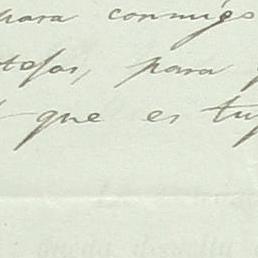 para conmigo
tosas, para
que es tu